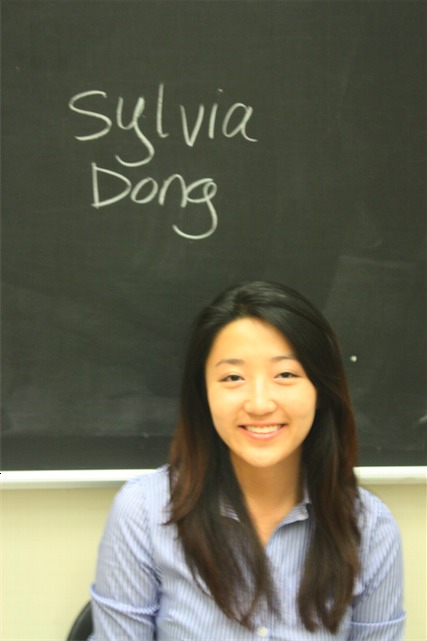 Sylvia
Dong